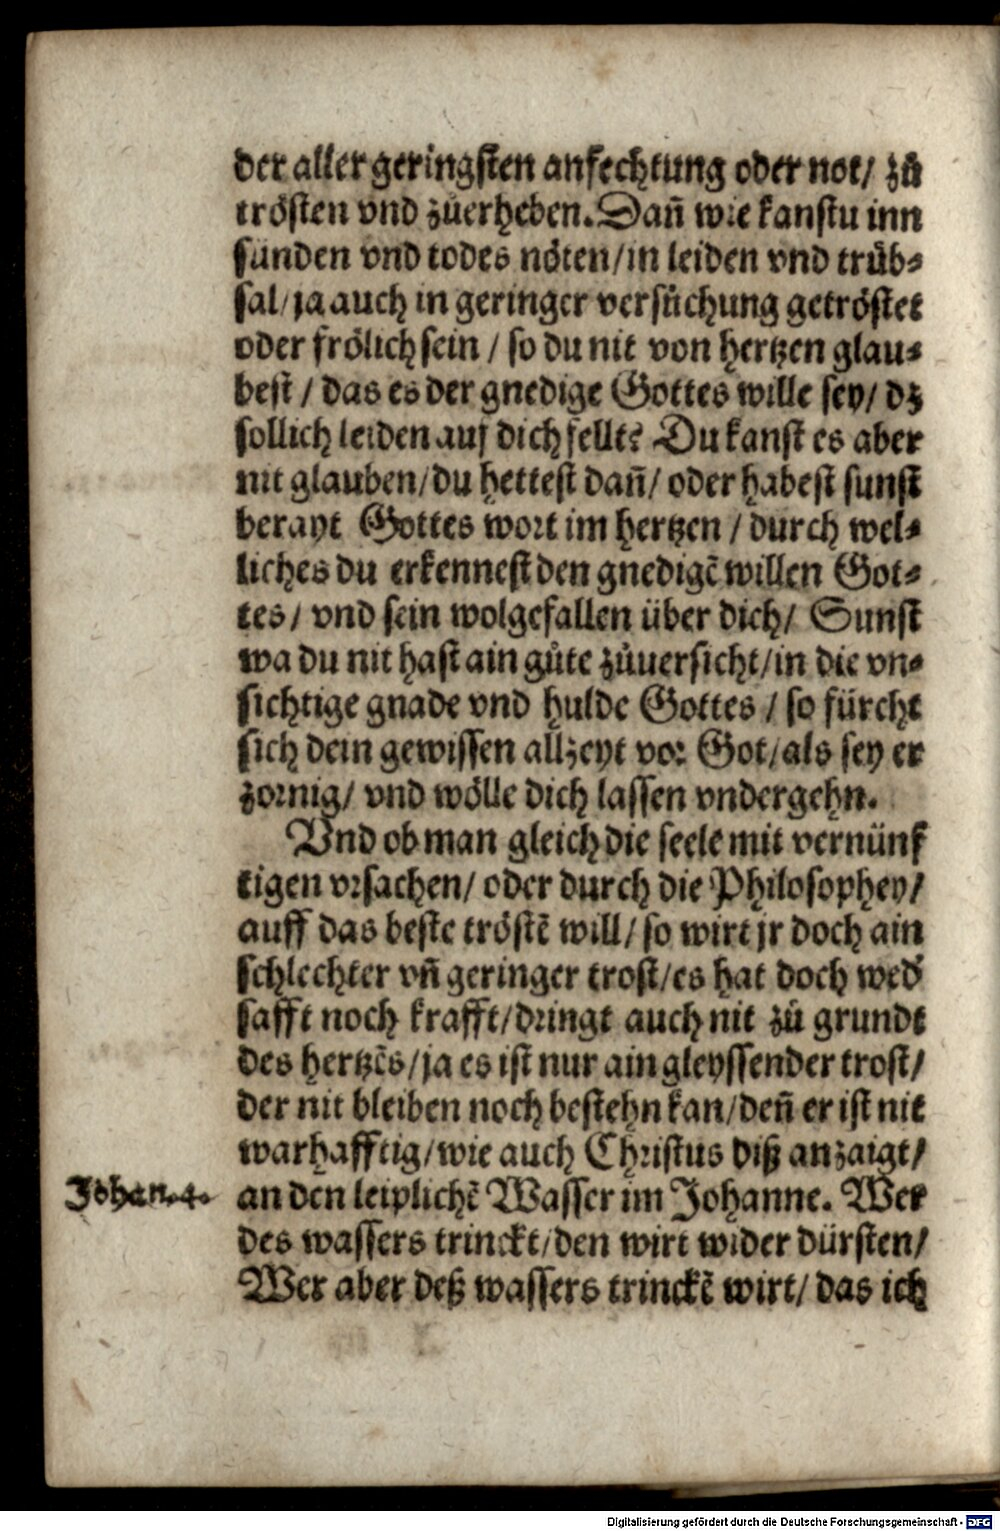 der aller geringsten anfechtung oder not/ zů
trösten vnd zůerheben. Dañ wie kanstu inn
sünden vnd todes nöten/in leiden vnd trüb⸗
sal/ja auch in geringer versůchung getröstet
oder frölich sein / so du nit von hertzen glau⸗
best / das es der gnedige Gottes wille sey/ dz
sollich leiden auf dich fellt? Du kanst es aber
nit glauben/du hettest dañ/ oder habest sunst
berayt Gottes wort im hertzen / durch wel⸗
liches du erkennest den gnedigē willen Got⸗
tes/ vnd sein wolgefallen über dich/ Sunst
wa du nit hast ain gůte zůuersicht/in die vn⸗
sichtige gnade vnd hulde Gottes / so fürcht
sich dein gewissen allzeyt vor Got/als sey er
zornig/ vnd wölle dich lassen vndergehn.
Vnd ob man gleich die seele mit vernünf
tigen vrsachen/ oder durch die Philosophey/
auff das beste tröstē will/ so wirt jr doch ain
schlechter vñ geringer trost/es hat doch wed'
safft noch krafft/dringt auch nit zů grundt
des hertzēs/ja es ist nur ain gleyssender trost/
der nit bleiben noch bestehn kan/deñ er ist nit
warhafftig/wie auch Christus diß anzaigt/
Johan.4. an den leiplichē Wasser im Johanne. Wer
des wassers trinckt/den wirt wider dürsten/
Wer aber deß wassers trinckē wirt/ das ich
Digitalisierung gefördert durch die Deutsche Forschungsgemeinschaft - DFG